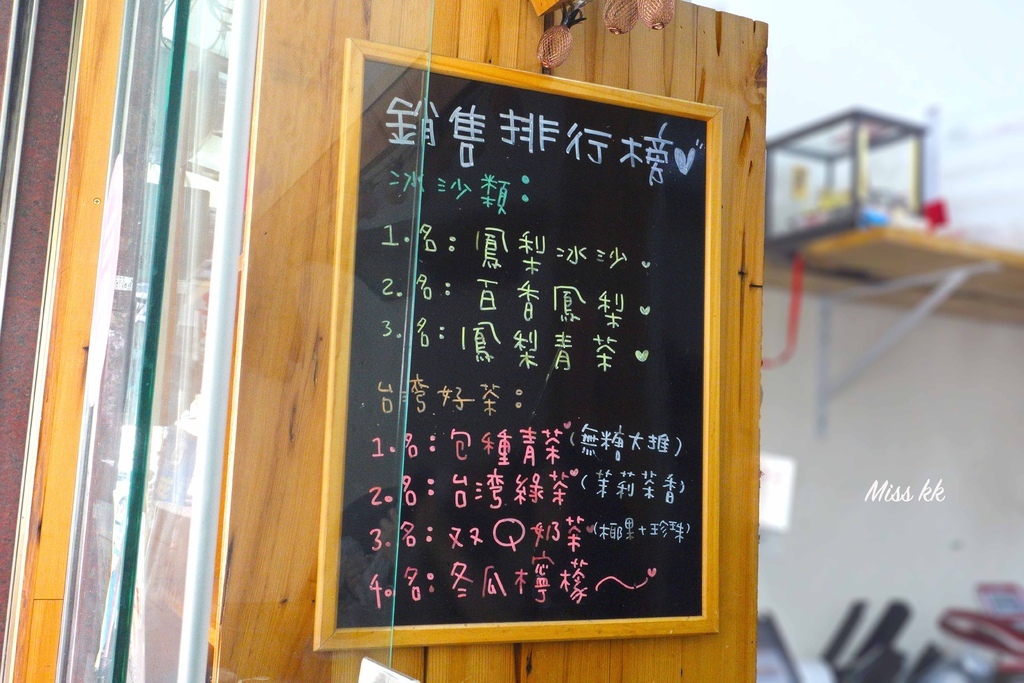 銷售排行榜
冰沙類：
1.名：鳳梨冰沙
2.名：百香鳳梨
3.名：鳳梨青茶
台湾好茶：
1.名：包種青茶(無糖大推)
2.名：台湾綠茶(茉莉茶香)
3.名：双双Q奶茶(椰果+珍珠)
4.名：冬瓜檸檬
Miss kk